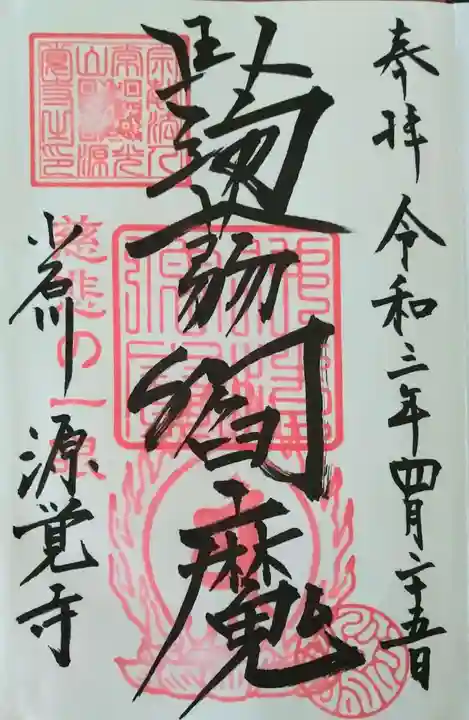 奉拝 令和三年四月二十五日
蒟蒻閻魔
慈悲の一
小石川 源覚寺